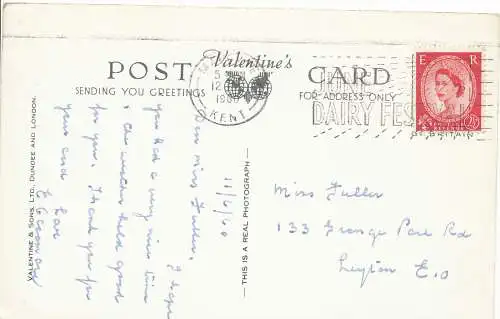 Valentine's
POST CARD
SENDING YOU GREETINGS
FOR ADDRESS ONLY
1960
KENT
DAIRY FES
E R
2½
VALENTINE & SONS, LTD., DUNDEE AND LONDON.
THIS IS A REAL PHOTOGRAPH
11/6/60
Dear Miss Fuller,
I hope
you had a very nice time
& the weather held good
for you. Thank you for
your card
Love
Miss Fuller
133 Grange Park Rd
Leyton E.10